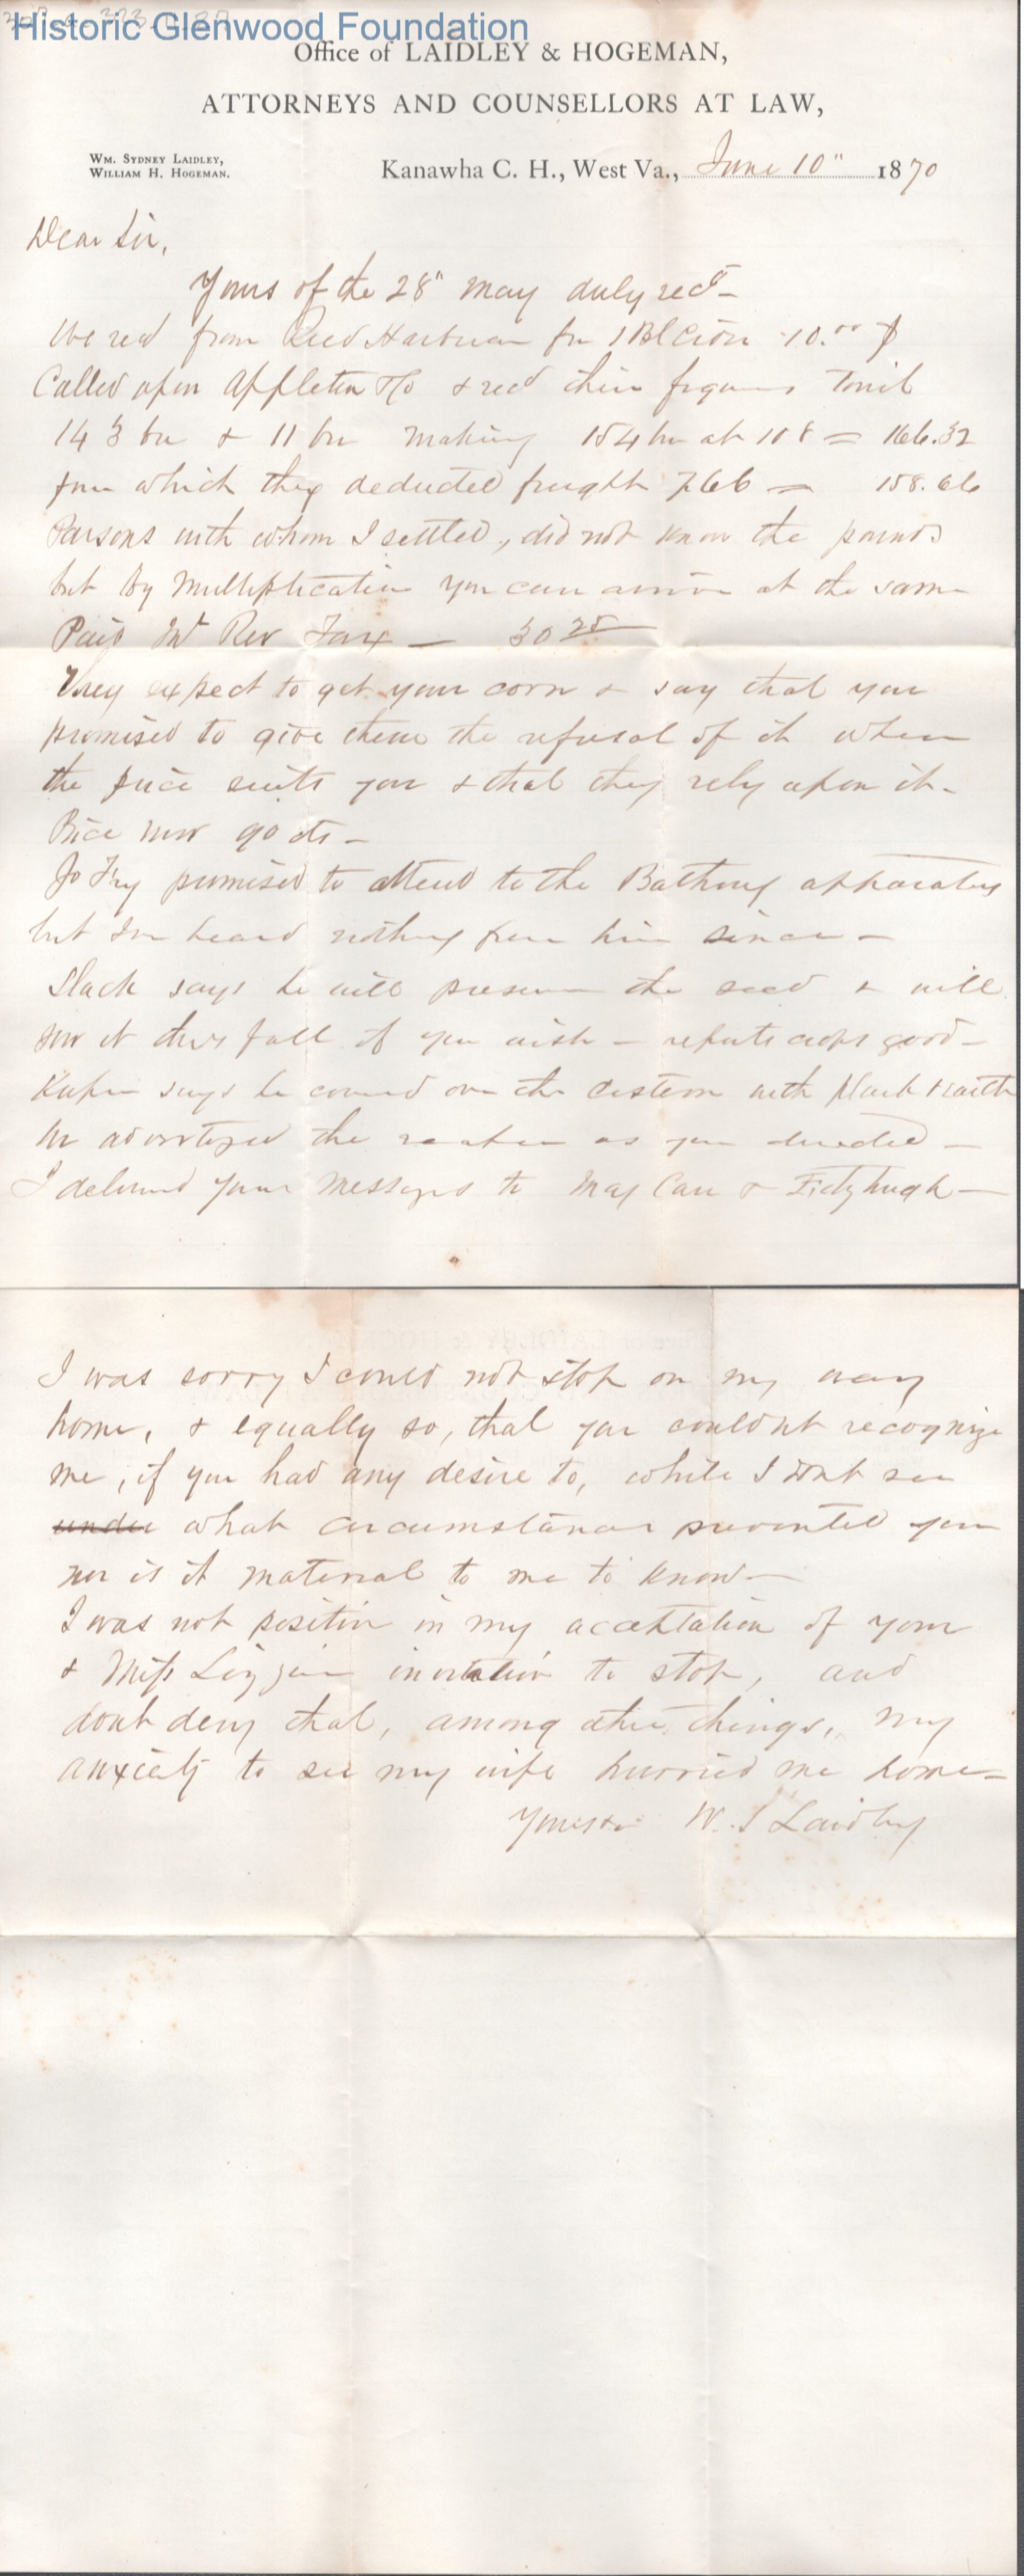 Historic Glenwood Foundation
Office of LAIDLEY & HOGEMAN,
ATTORNEYS AND COUNSELLORS AT LAW,
WM. SYDNEY LAIDLEY,
WILLIAM H. HOGEMAN.
Kanawha C. H., West Va., June 10" 1870
Dear Sir,
Yours of the 28" May duly recd-
We recd from Reed for 1 Bl 10.00
Called upon Appleton & Co & recd their figures towit
143 bu & 11 bu making 154 bu at 108 = 166.32
from which they deducted freight 7.66 = 158.66
Parsons with whom I settled, did not know the pounds
but by multiplication you can arrive at the same
Paid Int Rev Tax - 30 25
They expect to get your corn & say that you
promised to give them the refusal of it when
the price suits you & that they rely upon it.
Price now 90 cts -
Jo Fry promised to attend to the Bathing apparatus
but Ive heard nothing from him since -
Slack says he will preserve the seed & will
sow it this fall if you wish - reports crops good -
says he covered over the cistern with plank & earth
advertized the as you directed -
I delivered your messages to Maj Carr & Fitzhugh -
I was sorry I could not stop on my way
home, & equally so, that you couldnt recognize
me, if you had any desire to, while I dont see
under what circumstances prevented you
nor is it material to me to know -
I was not positive in my acceptation of your
& Miss Lizzie invitation to stop, and
dont deny that, among other things, my
anxiety to see my wife hurried me home -
Yours &c W. S Laidley